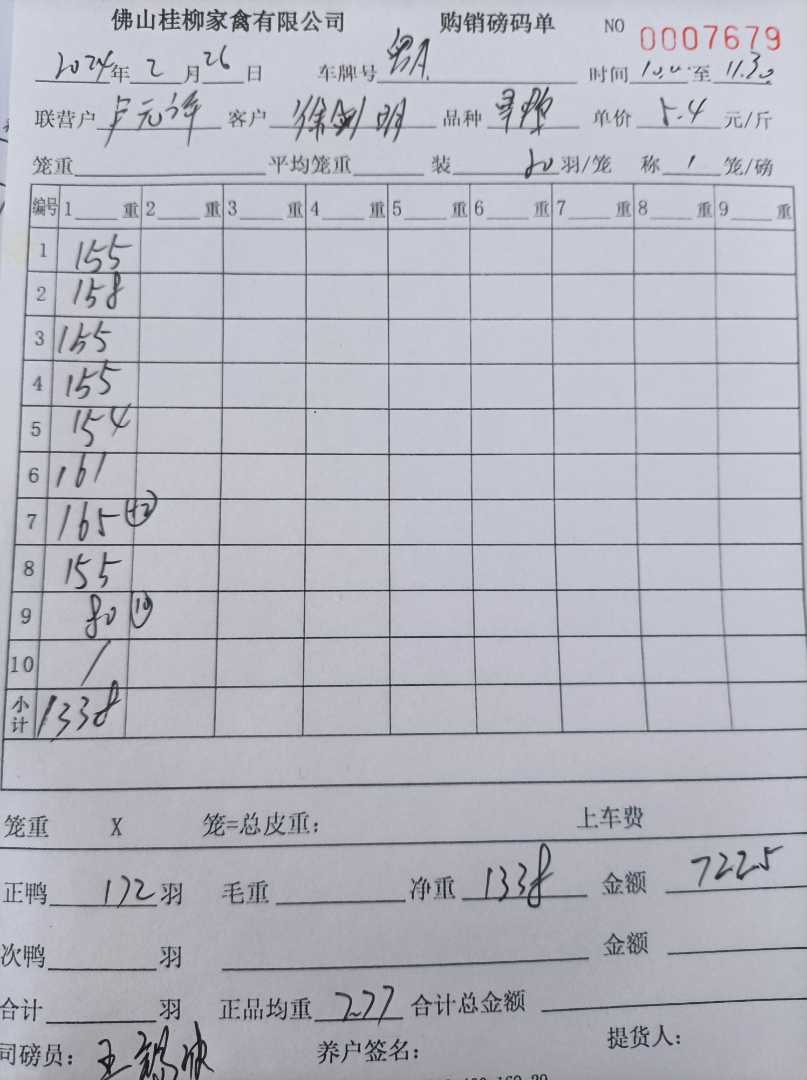 佛山桂柳家禽有限公司 购销磅码单 NO 0007679
2024年2月26日 车牌号 时间 至11.30
联营户卢元 客户徐 明 品种 单价5.4元/斤
笼重 平均笼重 装20羽/笼 称1笼/磅
编号 1 重 2 重 3 重 4 重 5 重 6 重 7 重 8 重 9 重
1 155
2 158
3 155
4 155
5 154
6 161
7 165 +2
8 155
9 80 10
10 /
小计 1338
笼重 X 笼=总皮重: 上车费
正鸭172羽 毛重 净重1338 金额7225
次鸭 羽 金额
合计 羽 正品均重7.77 合计总金额
司磅员:王 波 养户签名: 提货人: